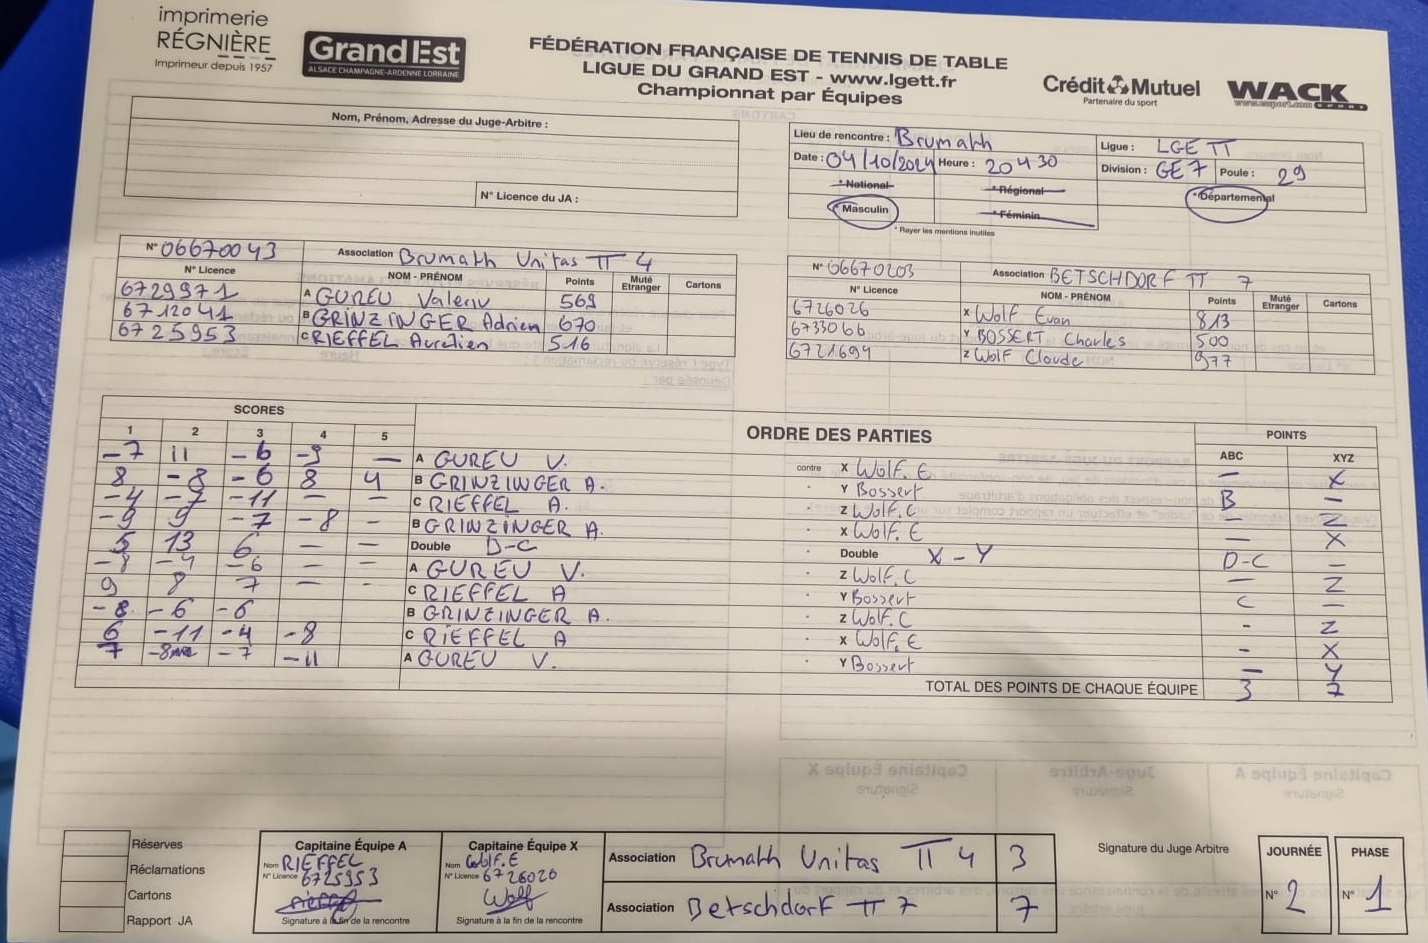 imprimerie
RÉGNIÈRE
Imprimeur depuis 1957
Grand Est
ALSACE CHAMPAGNE-ARDENNE LORRAINE
FÉDÉRATION FRANÇAISE DE TENNIS DE TABLE
LIGUE DU GRAND EST - www.lgett.fr
Championnat par Équipes
Crédit Mutuel
Partenaire du sport
WACK
SPORT
Nom, Prénom, Adresse du Juge-Arbitre :
N° Licence du JA :
Lieu de rencontre : Brumath
Ligue : LGETT
Date : 04/10/2024 Heure : 20H30
Division : GE7 Poule : 29
* National
* Régional
* Départemental
* Masculin
* Féminin
* Rayer les mentions inutiles
N° 06670043 Association Brumath Unitas TT 4
N° Licence NOM - PRÉNOM Points Muté Etranger Cartons
6729971 A GUREU Valeriu 569
6712041 B GRINZINGER Adrien 670
6725953 C RIEFFEL Aurelien 516
N° 06670203 Association BETSCHDORF TT 7
N° Licence NOM - PRÉNOM Points Muté Etranger Cartons
6726026 X Wolf Evan 813
6733066 Y BOSSERT Charles 500
6721694 Z Wolf Claude 977
SCORES ORDRE DES PARTIES POINTS
1 2 3 4 5 ABC XYZ
-7 11 -6 -9 — A GUREU V. contre X Wolf. E — X
8 -8 -6 8 4 B GRINZINGER A. Y Bossert B —
-4 -7 -11 — — C RIEFFEL A. Z Wolf. C — Z
-9 9 -7 -8 - B GRINZINGER A. X Wolf. E — X
5 13 6 — — Double B-C Double X-Y B-C —
-8 -4 -6 — — A GUREU V. Z Wolf. C — Z
9 8 7 — - C RIEFFEL A Y Bossert C —
-8 -6 -6 B GRINZINGER A. Z Wolf. C - Z
6 -11 -4 -8 C RIEFFEL A X Wolf. E - X
7 -8 -7 -11 A GUREU V. Y Bossert — Y
TOTAL DES POINTS DE CHAQUE ÉQUIPE 3 7
Réserves
Réclamations
Cartons
Rapport JA
Capitaine Équipe A
Nom RIEFFEL
N° Licence 6725953
Rieffel
Signature à la fin de la rencontre
Capitaine Équipe X
Nom Wolf. E
N° Licence 6726026
Wolf
Signature à la fin de la rencontre
Association Brumath Unitas TT 4 3
Association Betschdorf TT 7 7
Signature du Juge Arbitre
JOURNÉE
N° 2
PHASE
N° 1